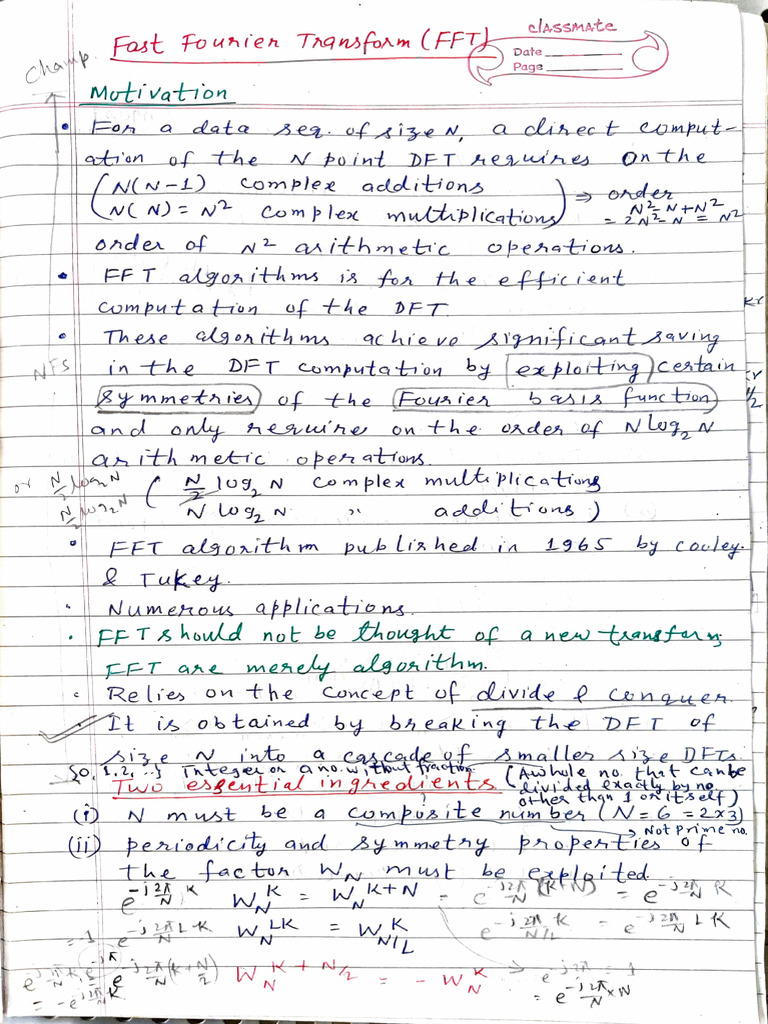 classmate
Date
Page
Champ.
Fast Fourier Transform (FFT)
Motivation
• For a data seq. of size N, a direct comput-
ation of the N point DFT requires on the
(N(N-1) complex additions
(N(N) = N² complex multiplications) ⇒ order
N²-N+N²
= 2N²-N = N²
order of N² arithmetic operations.
• FFT algorithms is for the efficient
computation of the DFT
• These algorithms achieve significant saving
NFS
in the DFT computation by exploiting certain
symmetries of the Fourier basis function
and only require on the order of N log₂ N
arithmetic operations.
or N/2 log₂ N
N/2 log₂ N
( N/2 log₂ N complex multiplications
N log₂ N " additions )
• FFT algorithm published in 1965 by Cooley
& Tukey.
• Numerous applications.
• FFT should not be thought of a new transform,
FFT are merely algorithm.
• Relies on the concept of divide & conquer.
• It is obtained by breaking the DFT of
size N into a cascade of smaller size DFTs.
So, 1, 2, ..} Integer or a no. without fraction
Two essential ingredients (A whole no. that can be
divided exactly by no.
other than 1 or itself)
(i) N must be a composite number (N = 6 = 2×3)
→ Not prime no.
(ii) periodicity and symmetry properties of
the factor W_N must be exploited
e^{-j 2π/N K} W_N^K = W_N^{K+N} = e^{-j2π/N (K+N)} = e^{-j2π/N K}
= 1 e^{-j 2π/N LK} W_N^{LK} = W_{N/L}^K e^{-j 2π/(N/L) K} = e^{-j 2π/N LK}
e^{-j 2π/N (K+N/2)} W_N^{K+N/2} = -W_N^K → e^{-j2π} = 1
= -e^{-j 2π/N K} = e^{-j 2π/N × N}